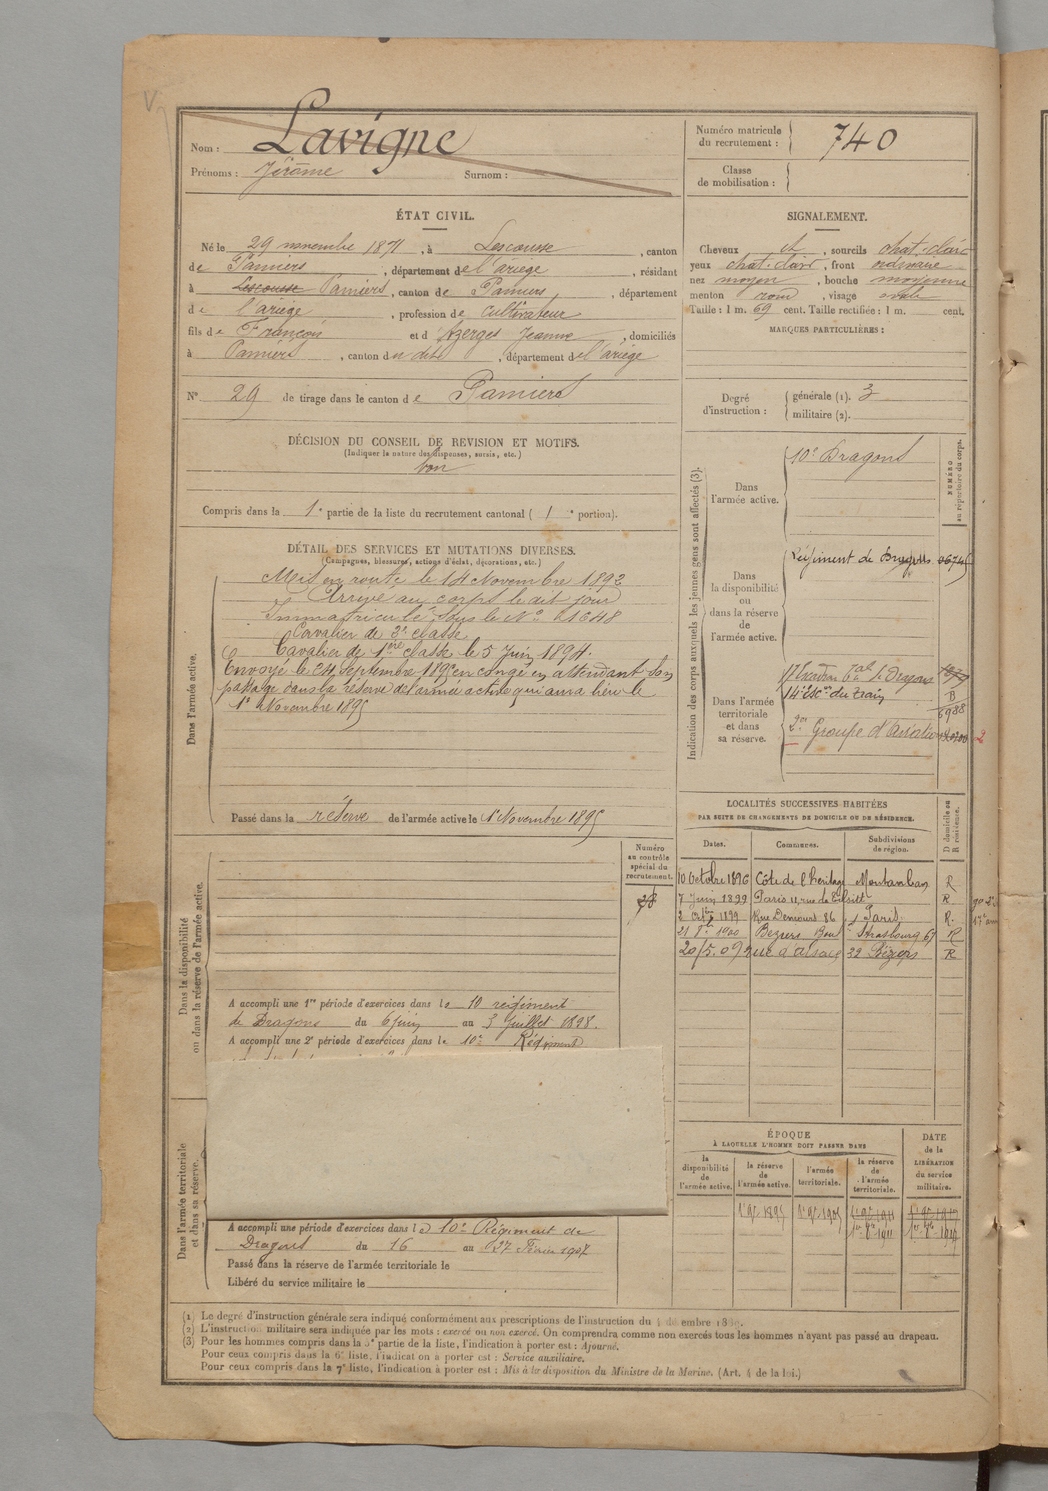 Nom : Lavigne
Prénoms : Jérôme Surnom :
Numéro matricule
du recrutement : 740
Classe
de mobilisation :
ÉTAT CIVIL.
Né le 29 novembre 1871, à Lescousse, canton
de Pamiers, département de l'ariège, résidant
à Lescousse Pamiers, canton de Pamiers, département
de l'ariège, profession de cultivateur
fils de François et d' Azerges Jeanne, domiciliés
à Pamiers, canton du dit, département de l'ariège
N° 29 de tirage dans le canton de Pamiers
SIGNALEMENT.
Cheveux ch, sourcils chat-clairs
yeux chat-clairs, front ordinaire
nez moyen, bouche moyenne
menton rond, visage ovale
Taille : 1 m. 69 cent. Taille rectifiée : 1 m. cent.
MARQUES PARTICULIÈRES :
Degré
d'instruction :
générale (1). 3
militaire (2).
DÉCISION DU CONSEIL DE REVISION ET MOTIFS.
(Indiquer la nature des dispenses, sursis, etc.)
bon
Compris dans la 1e partie de la liste du recrutement cantonal ( 1e portion).
DÉTAIL DES SERVICES ET MUTATIONS DIVERSES.
(Campagnes, blessures, actions d'éclat, décorations, etc.)
Dans l'armée active.
Mis en route le 14 Novembre 1892
Arrivé au corps le dit jour
Immatriculé sous le N°
Cavalier de 2e classe
Cavalier de 1ère classe le 5 Juin 1894.
Envoyé le 24 Septembre 1895 en congé en attendant son
passage dans la réserve de l'armée active qui aura lieu le
1er Novembre 1895
Passé dans la réserve de l'armée active le 1er Novembre 1895
Indication des corps auxquels les jeunes gens sont affectés (3).
NUMÉRO
au répertoire du corps.
Dans
l'armée active.
10e Dragons
Dans
la disponibilité
ou
dans la réserve
de
l'armée active.
Régiment de Dragons
Dans l'armée
territoriale
et dans
sa réserve.
17 Escadron Tal de Dragons
14e Esc. du train
B
6988
2me Groupe d'Aviation 2
LOCALITÉS SUCCESSIVES HABITÉES
PAR SUITE DE CHANGEMENTS DE DOMICILE OU DE RÉSIDENCE.
Dates. Communes. Subdivisions de région. D domicile ou R résidence.
10 Octobre 1896 Côte de l'héritage Montauban R
7 Juin 1899 Paris 11, rue de Tilsitt R
2 1899 Rue Denicourt 86 Paris. R.
21 1900 Béziers Boul Strasbourg 67 R
20/5.09 rue d'alsace 32 Béziers R
Numéro
au contrôle
spécial du
recrutement.
Dans la disponibilité
ou dans la réserve de l'armée active.
A accompli une 1re période d'exercices dans le 10 régiment
de Dragons du 6 juin au 3 Juillet 1898.
A accompli une 2e période d'exercices dans le 10e Régiment
ÉPOQUE
À LAQUELLE L'HOMME DOIT PASSER DANS
la disponibilité de l'armée active.
la réserve de l'armée active.
l'armée territoriale.
la réserve de l'armée territoriale.
DATE de la LIBÉRATION du service militaire.
1er 9e 1895
Dans l'armée territoriale
et dans sa réserve.
A accompli une période d'exercices dans le 10e Régiment de
Dragons du 16 au 27 Février 1907
Passé dans la réserve de l'armée territoriale le
Libéré du service militaire le
(1) Le degré d'instruction générale sera indiqué conformément aux prescriptions de l'instruction du 4 décembre
(2) L'instruction militaire sera indiquée par les mots : exercé ou non exercé. On comprendra comme non exercés tous les hommes n'ayant pas passé au drapeau.
(3) Pour les hommes compris dans la 5e partie de la liste, l'indication à porter est : Ajourné.
Pour ceux compris dans la 6e liste, l'indication à porter est : Service auxiliaire.
Pour ceux compris dans la 7e liste, l'indication à porter est : Mis à la disposition du Ministre de la Marine. (Art. 4 de la loi.)